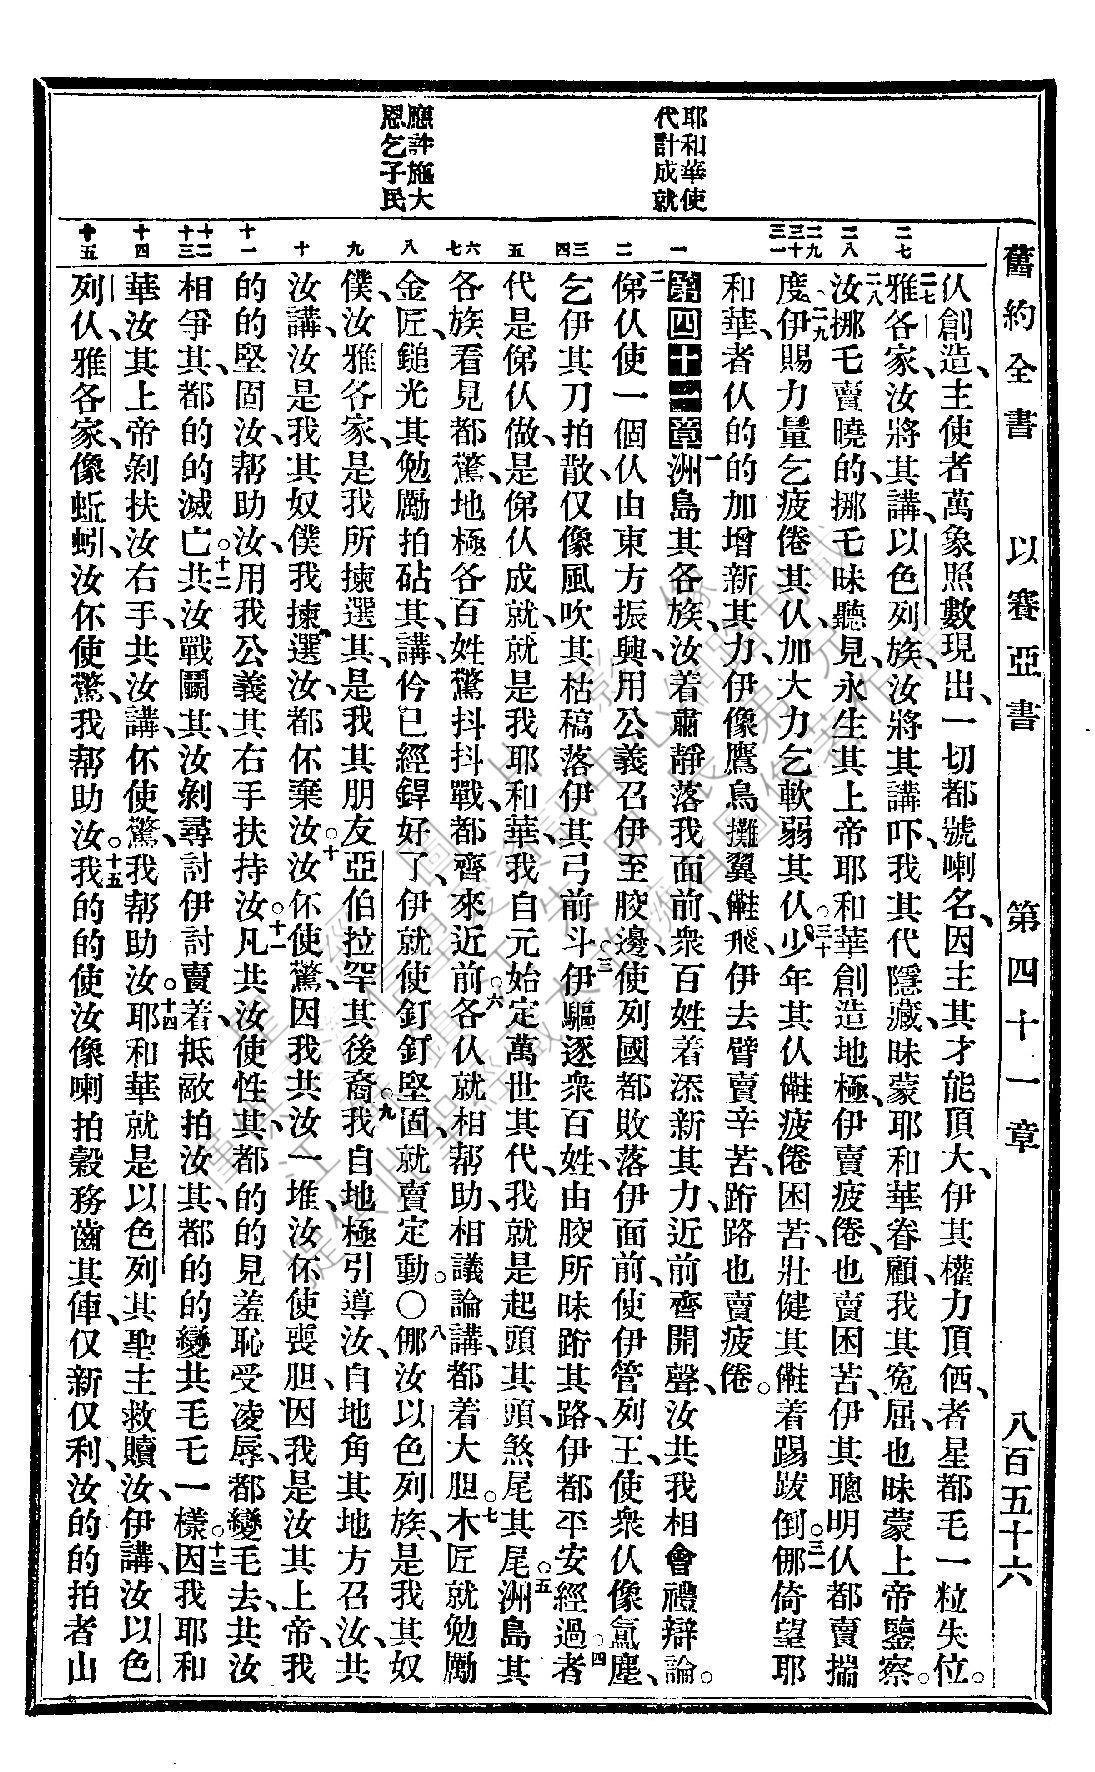 舊約全書 以賽亞書 第四十一章 八百五十六
耶和華使
代計成就
應許施大
恩乞子民
二七
二八
二九 三十 三一
一
二
三 四
五
六 七
八
九
十
十一
十二 十三
十四
十五
仈創造、主使者萬象照數現出、一切都號喇名、因主其才能頂大、伊其權力頂俹、者星都毛一粒失位。
二七雅各家、汝將其講、以色列族、汝將其講、吓我其代隱藏、昧蒙耶和華眷顧、我其寃屈、也昧蒙上帝鑒察。
二八汝挪毛賣曉的、挪毛昧聽見、永生其上帝耶和華創造地極、伊賣疲倦、也賣困苦、伊其聰明仈都賣揣
度、二九伊賜力量乞疲倦其仈、加大力乞軟弱其仈。三十少年其仈㒙疲倦困苦、壯健其㒙着踢跋倒。三一倻倚望耶
和華者仈的的加增新其力、伊像鷹鳥攤翼㒙飛、伊去臂賣辛苦、跲路也賣疲倦。
第四十一章 一洲島其各族、汝着肅靜落我面前、衆百姓着添新其力、近前齊開聲、汝共我相會禮辯論。
二俤仈使一個仈由東方振興、用公義召伊至骹邊、使列國都敗落伊面前、使伊管列王、使衆仈像氳塵、
乞伊其刀拍散、仅像風吹其枯稿落伊其弓前斗。三伊驅逐衆百姓、由骹所昧跲其路、伊都平安經過。四者
代是俤仈做、是俤仈成就、就是我耶和華、我自元始定萬世其代、我就是起頭其頭、煞尾其尾。五洲島其
各族看見都驚、地極各百姓驚抖抖戰、都齊來近前。六各仈就相帮助相議論講、都着大胆。七木匠就勉勵
金匠、鎚光其勉勵拍砧其、講、伱已經銲好了、伊就使釘釘堅固、就賣定動。○八倻汝以色列族、是我其奴
僕、汝雅各家、是我所揀選其、是我其朋友亞伯拉罕其後裔。九我自地極引導汝、自地角其地方召汝、共
汝講、汝是我其奴僕、我揀選汝、都伓棄汝。十汝伓使驚、因我共汝一堆、汝伓使喪胆、因我是汝其上帝、我
的的堅固汝、帮助汝、用我公義其右手扶持汝。十一凡共汝使性其、都的的見羞恥受凌辱、都變毛去、共汝
相爭其、都的的滅亡。十二共汝戰鬭其、汝剝尋討伊討賣着、抵敵拍汝其、都的的變共毛乇一樣。十三因我耶和
華汝其上帝剝扶汝右手、共汝講、伓使驚、我帮助汝。十四耶和華就是以色列其聖主救贖汝、伊講、汝以色
列仈、雅各家、像蚯蚓、汝伓使驚、我帮助汝。十五我的的使汝像喇拍穀務齒其俥、仅新仅利、汝的的拍者山